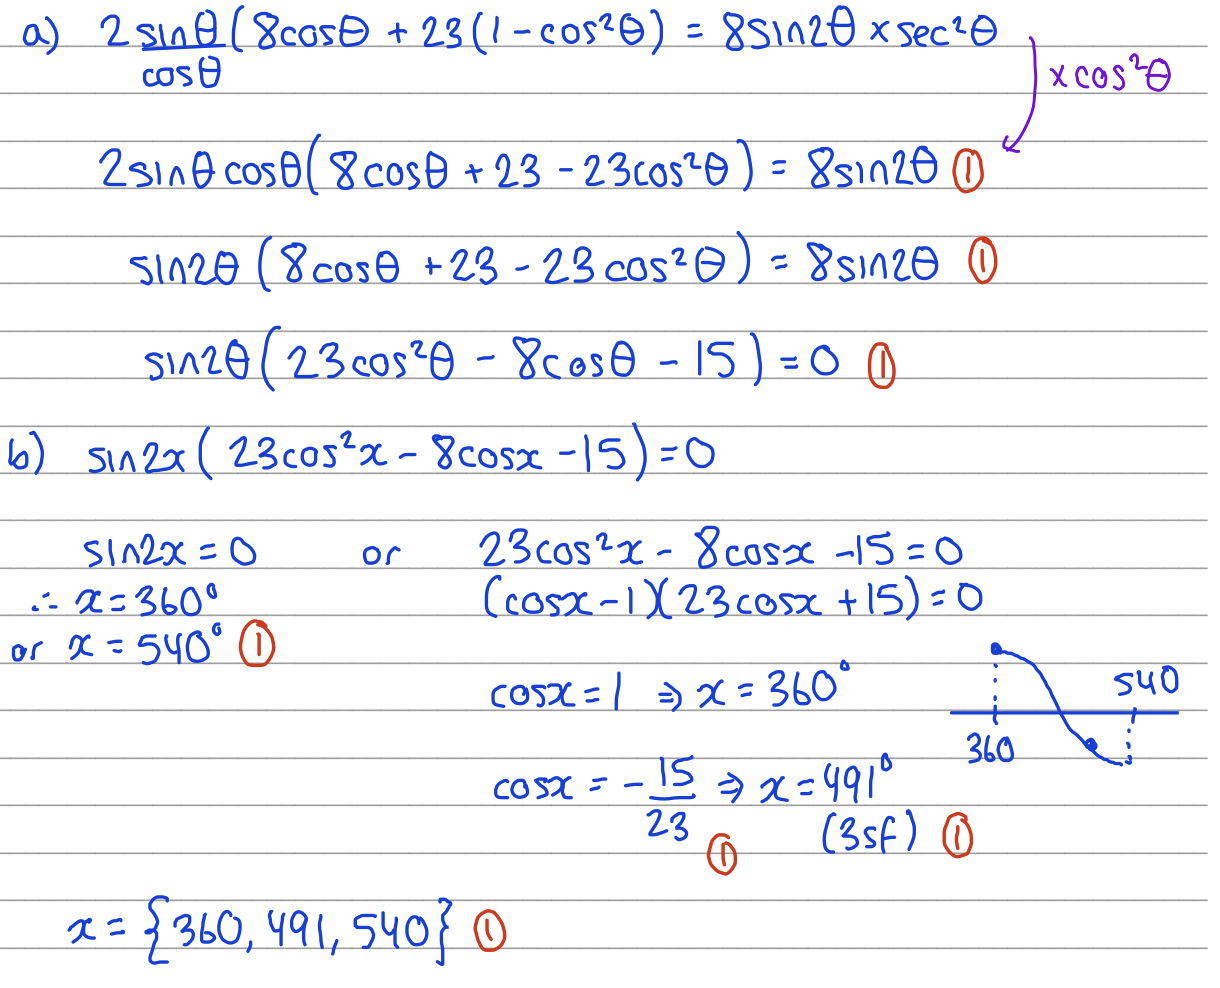 a) 2 sinθ/cosθ (8cosθ + 23(1 - cos²θ) = 8sin2θ × sec²θ
× cos²θ
2sinθcosθ(8cosθ + 23 - 23cos²θ) = 8sin2θ ①
sin2θ (8cosθ + 23 - 23cos²θ) = 8sin2θ ①
sin2θ(23cos²θ - 8cosθ - 15) = 0 ①
b) sin2x(23cos²x - 8cosx - 15) = 0
sin2x = 0 or 23cos²x - 8cosx - 15 = 0
∴ x = 360° (cosx - 1)(23cosx + 15) = 0
or x = 540° ①
cosx = 1 ⇒ x = 360°
540
360
cosx = -15/23 ⇒ x = 491°
① (3sf) ①
x = {360, 491, 540} ①